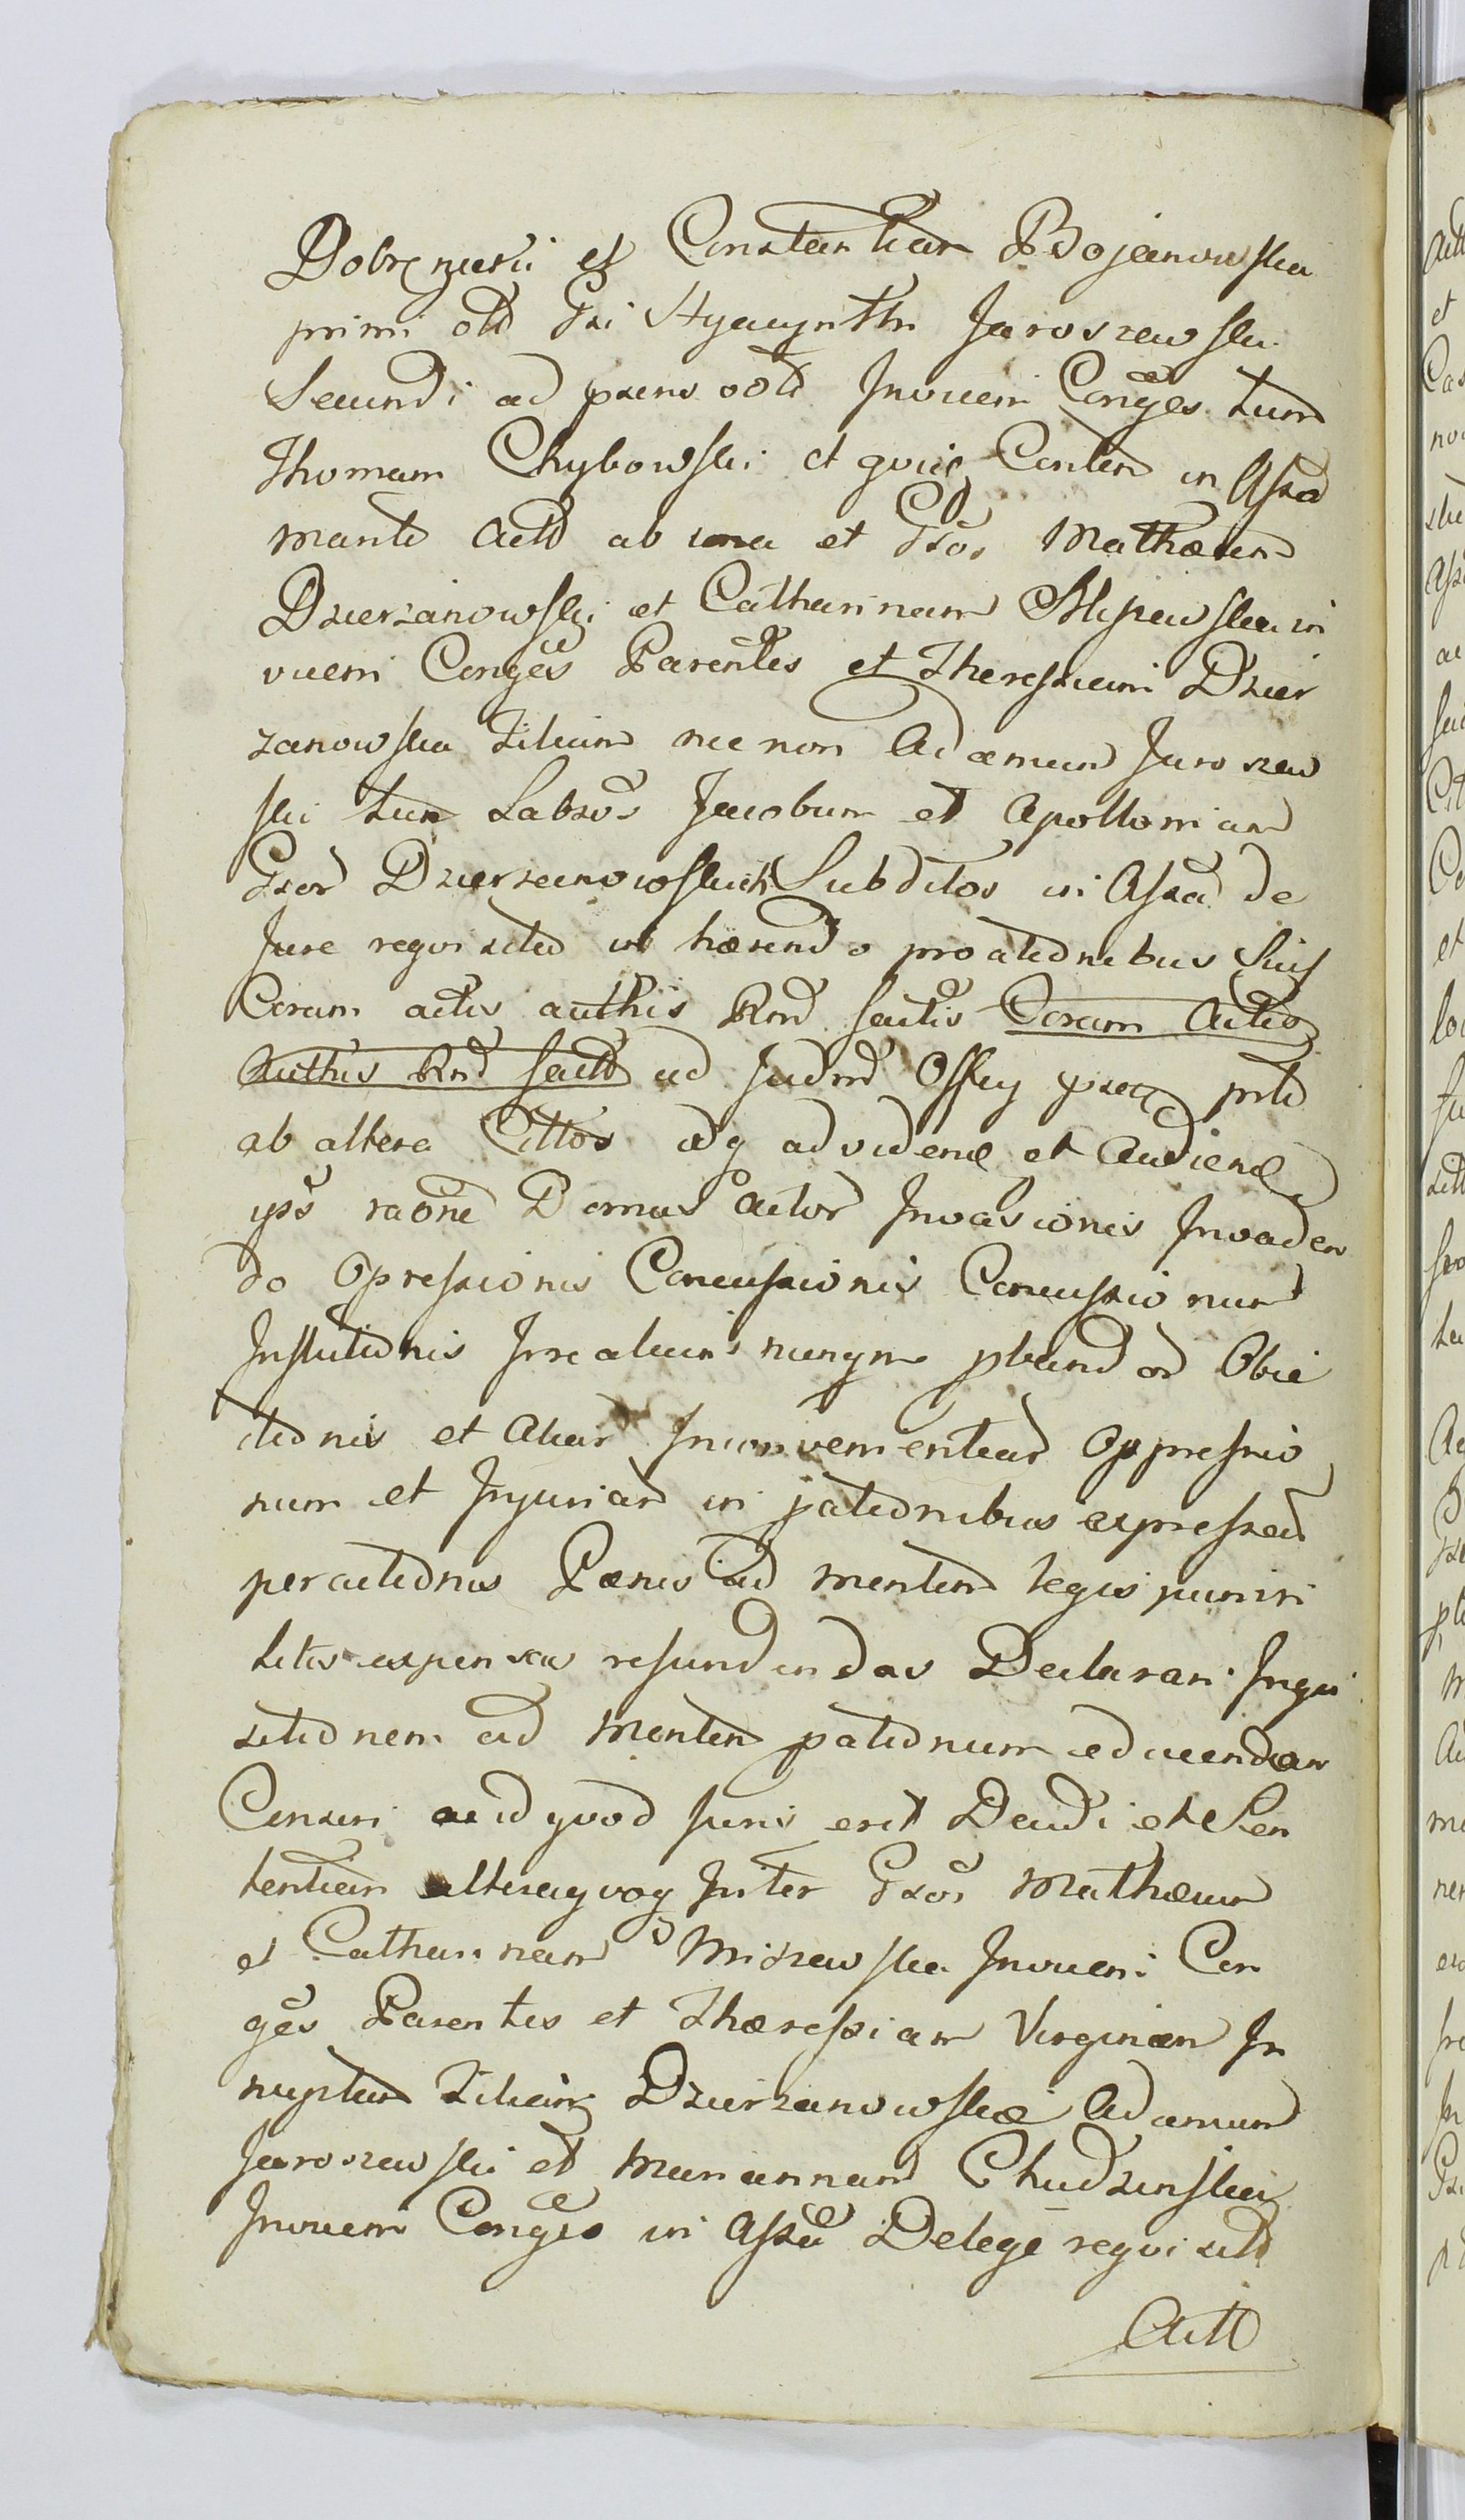 Dobrzycki et Constantiam Bojanowska
primi olt Gsi Hyacynthi Jaroszewski
Secundi ad psens vot Invicem Conges tum
Thomam Chybowski et quic Conten in Assa
mants Actt ab una et Gsos Mathæum
Dzierzanowski et Catharinam Misiewska in
vicem Conges Parentes et Theressiam Dzier
zanowska Filiam nec non Adæmum Jarosew
ski tum Labsos Jacobum et Apolloniam
Gsor Dzierzanowskich Subditos in Assa de
Jure requisita inhærendo protestnibus Suis
Coram actis authis Rnd factis Coram Actis
Authis Rnd fact ad Judm Offcy psca ptt
ab altera Cittos idq ad videnđ et Audienđ
ipsos raone Domus Actor Invasionis Invaden
do Opressionis Concussionis Concussionum
Insultationis Irrealium nunqm pband or Obie
ctionis et Aliar Inconvenientiar Oppressio
num et Injuriar in patestnibus expressar
peractionis Pænis ad mentem legis puniri
litis expensas refundendas Declarari Inqui
sitionem ad Mentem pattionum educendam
Censeri ac id quod Juris erit Decidi et Sen
tentiam alteraqvoq Inter Gsos Mathæum
et Catharinam Misiewska Invicem Con
ges Parentes et Thæressiam Virginem In
nuptam Filiam Dzierzanowskie Adamum
Jaroszewski et Mariannam Chudzinska
Invicem Conges in Assa Delege requisitt
Actt